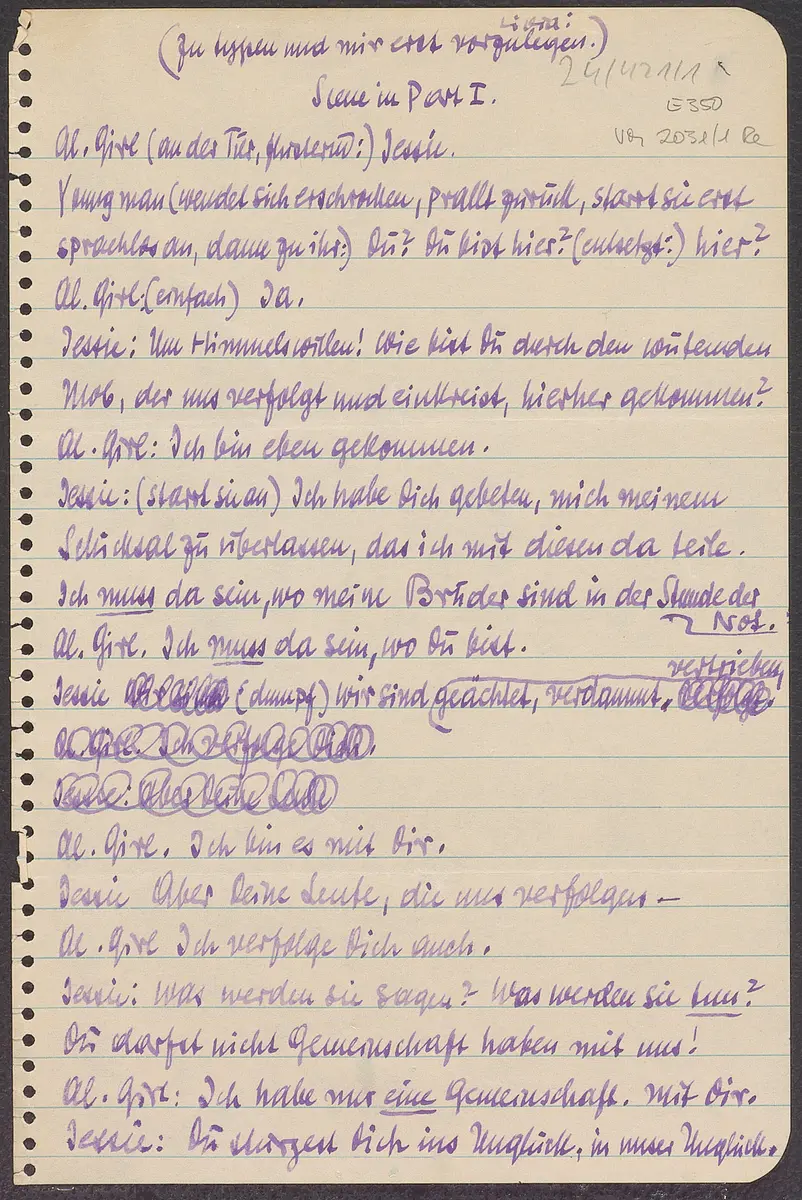 Livia:
(zu typen und mir erst vorzulegen.)
24/421/1
Scene in Part I.
E350
Vor 2031/1 Re
Al. Girl (an der Tür, flüsternd:) Jessie.
Young man (wendet sich erschrocken, prallt zurück, starrt sie erst
sprachlos an, dann zu ihr:) Du? Du bist hier? (entsetzt:) hier?
Al. Girl: (einfach) Ja.
Jessie: Um Himmelswillen! Wie bist Du durch den wütenden
Mob, der uns verfolgt und einkreist, hierher gekommen?
Al. Girl: Ich bin eben gekommen.
Jessie: (starrt sie an) Ich habe Dich gebeten, mich meinem
Schicksal zu überlassen, das ich mit diesen da teile.
Ich muss da sein, wo meine Brüder sind in der Stunde der
Not.
Al. Girl. Ich muss da sein, wo Du bist.
vertrieben,
Jessie (dumpf) Wir sind geächtet, verdammt, verfolgt.
Al. Girl. Ich verfolge Dich.
Jessie: Aber Deine Leute
Al. Girl. Ich bin es mit Dir.
Jessie Aber Deine Leute, die uns verfolgen –
Al. Girl Ich verfolge Dich auch.
Jessie: Was werden sie sagen? Was werden sie tun?
Du darfst nicht Gemeinschaft haben mit uns!
Al. Girl: Ich habe nur eine Gemeinschaft. Mit Dir.
Jessie: Du stürzest Dich ins Unglück, in unser Unglück.